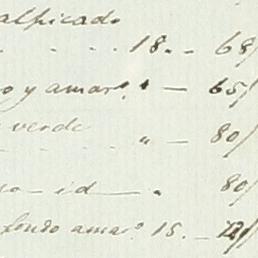 alpicado
. . . . 18. - 68/
o y amar.º " — 65/
verde
. . " — 80/
— id — . 80/
fondo amar.º 15. —